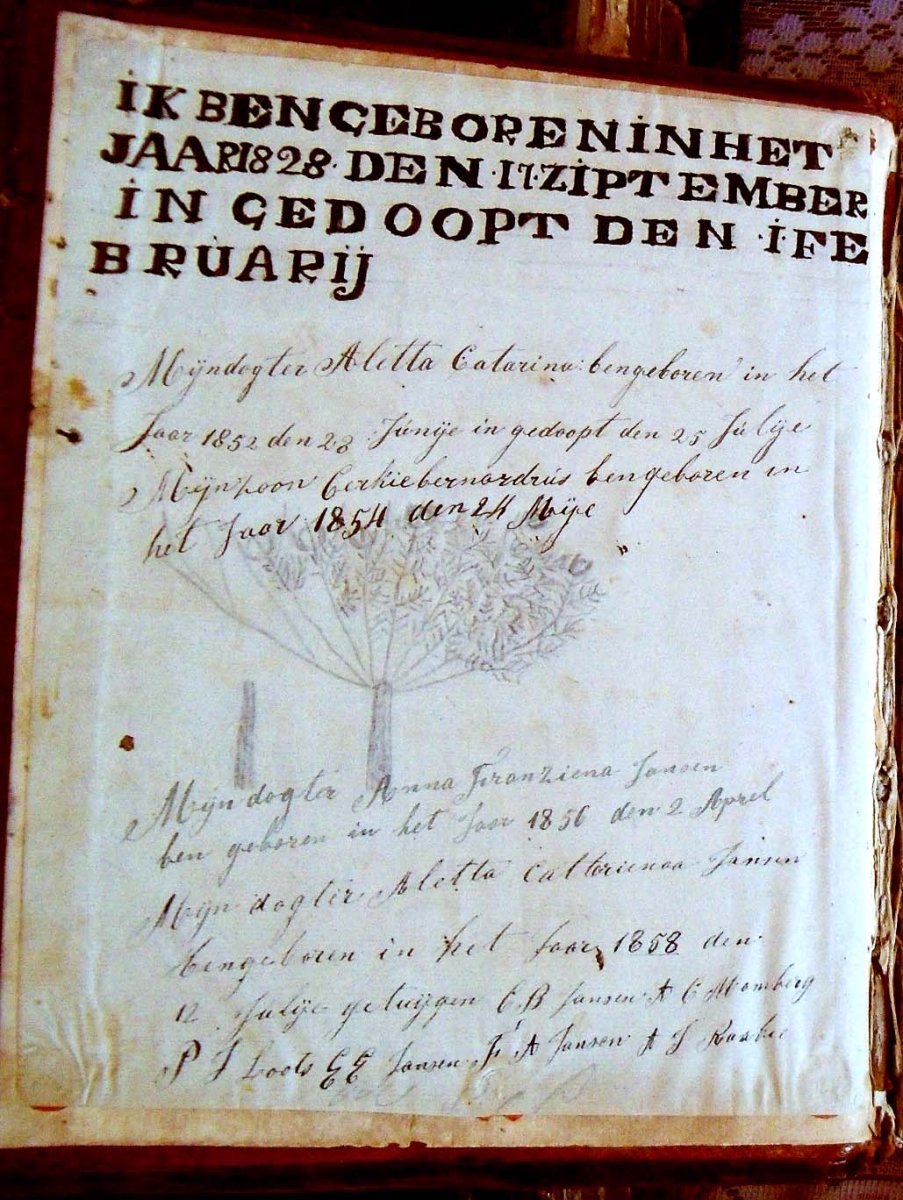 İK BEN GEBOREN İN HET
JAAR 1828. DEN .17. ZİPTEMBER
İN GEDOOPT DEN İ FE
BRUARIJ
Mijn dogter Aletta Catarina: bengeboren in het
Jaar 1852 den 23 Junije in gedoopt den 25 Julije
Mijn zoon Cerkiebernardrus bengeboren in
het Jaar 1854 den 24 Mije
Mijn dogter Anna Franziena Jansen
ben geboren in het Jaar 1856 den 2 Aprel
Mijn dogter Aletta Cattorienaa Jansen
bengeboren in het Jaar 1858 den
12 Julije getuijgen C B Jansen A C Momberg
P J Loots E E Jansen F A Jansen A J